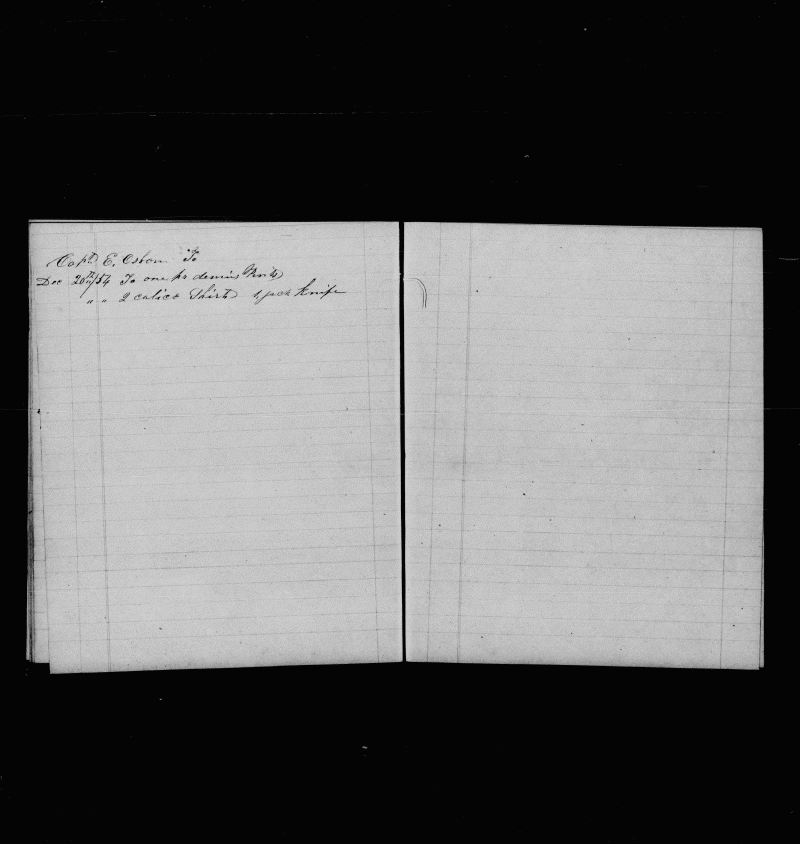 Capt. E. Osborn To
Dec 20th /54 To one pr denim
" " 2 calico Shirts 1 jack Knife